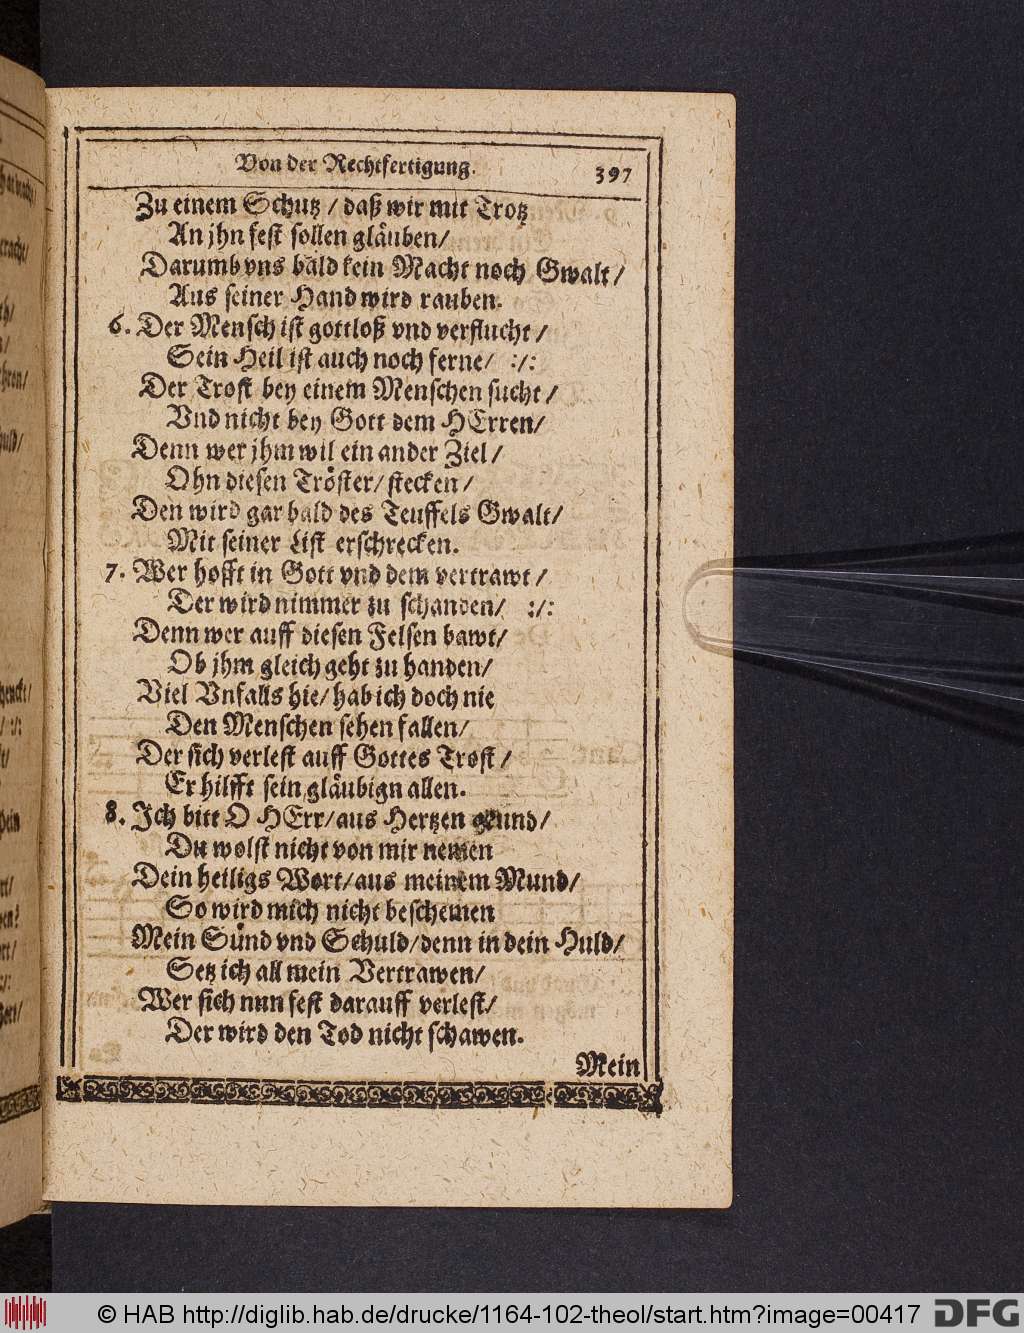 Von der Rechtfertigung. 397
Zu einem Schutz / daß wir mit Trotz
An jhn fest sollen gläuben/
Darumb vns bald kein Macht noch Gwalt /
Aus seiner Hand wird rauben.
6. Der Mensch ist gottloß vnd verflucht /
Sein Heil ist auch noch ferne/ :/:
Der Trost bey einem Menschen sucht /
Vnd nicht bey Gott dem HErren/
Denn wer jhm wil ein ander Ziel /
Ohn diesen Tröster/ stecken /
Den wird gar bald des Teuffels Gwalt/
Mit seiner List erschrecken.
7. Wer hofft in Gott vnd dem vertrawt /
Der wird nimmer zu schanden/ :/:
Denn wer auff diesen Felsen bawt/
Ob jhm gleich geht zu handen/
Viel Vnfalls hie/ hab ich doch nie
Den Menschen sehen fallen/
Der sich verlest auff Gottes Trost /
Er hilfft sein gläubign allen.
8. Ich bitt O HErr/aus Hertzen grund/
Du wolst nicht von mir nemen
Dein heiligs Wort/aus meinem Mund/
So wird mich nicht beschemen
Mein Sünd vnd Schuld/denn in dein Huld/
Setz ich all mein Vertrawen/
Wer sich nun fest darauff verlest/
Der wird den Tod nicht schawen.
Mein
© HAB http://diglib.hab.de/drucke/1164-102-theol/start.htm?image=00417 DFG